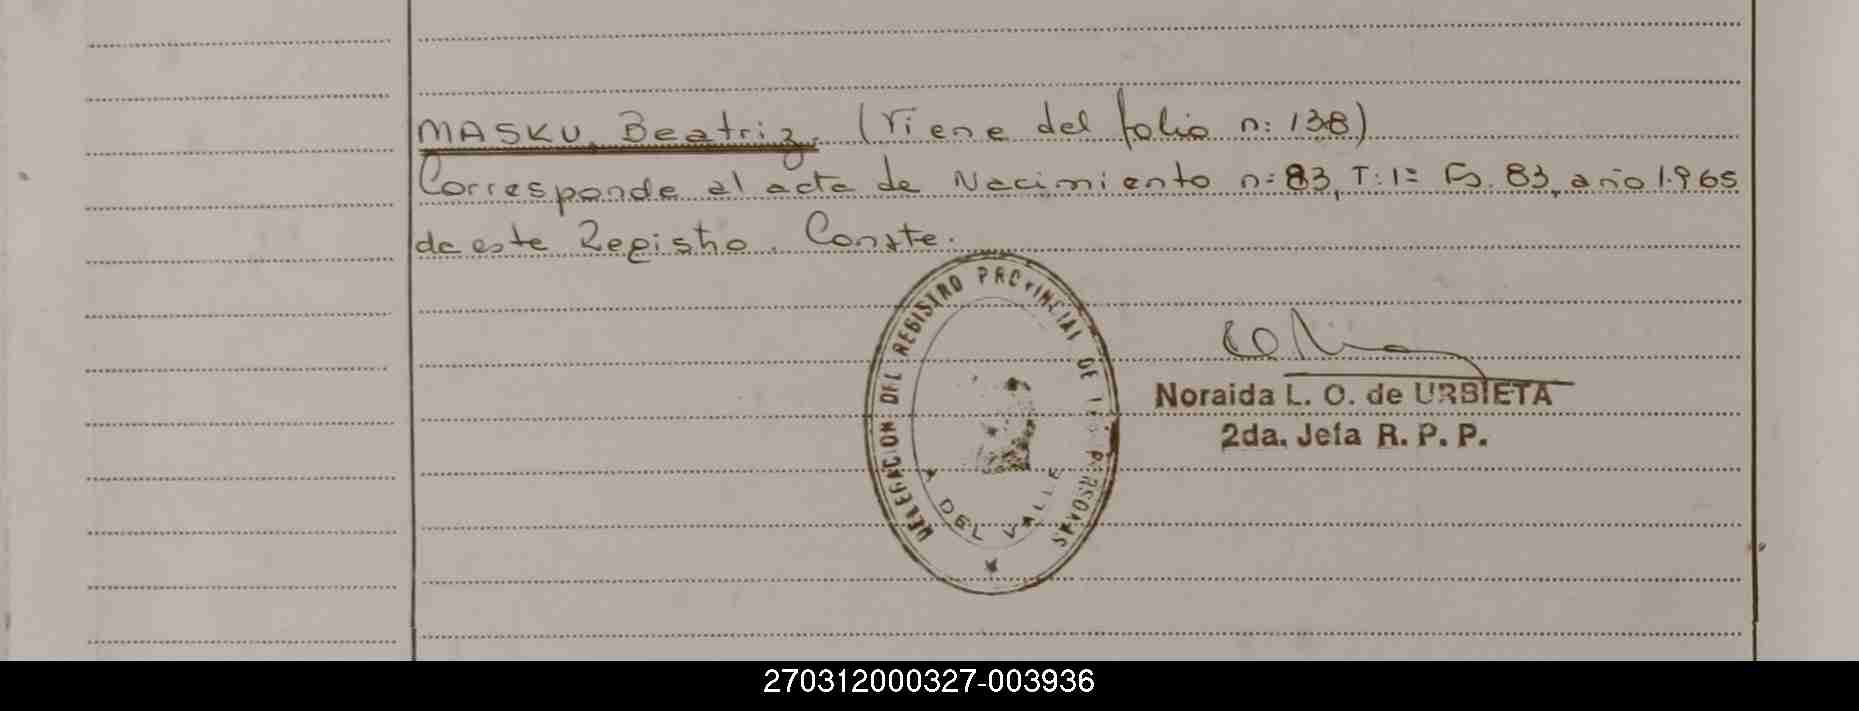 MASKU, Beatriz, (Viene del folio n: 138)
Corresponde al acta de Nacimiento n: 83, T: 1= Fs. 83, año 1.965
de este Registro. Conste.
DELEGACION DEL REGISTRO PROVINCIAL DE LAS PERSONAS
DEL VALLE
Noraida L. O. de URBIETA
2da. Jefa R. P. P.
270312000327-003936